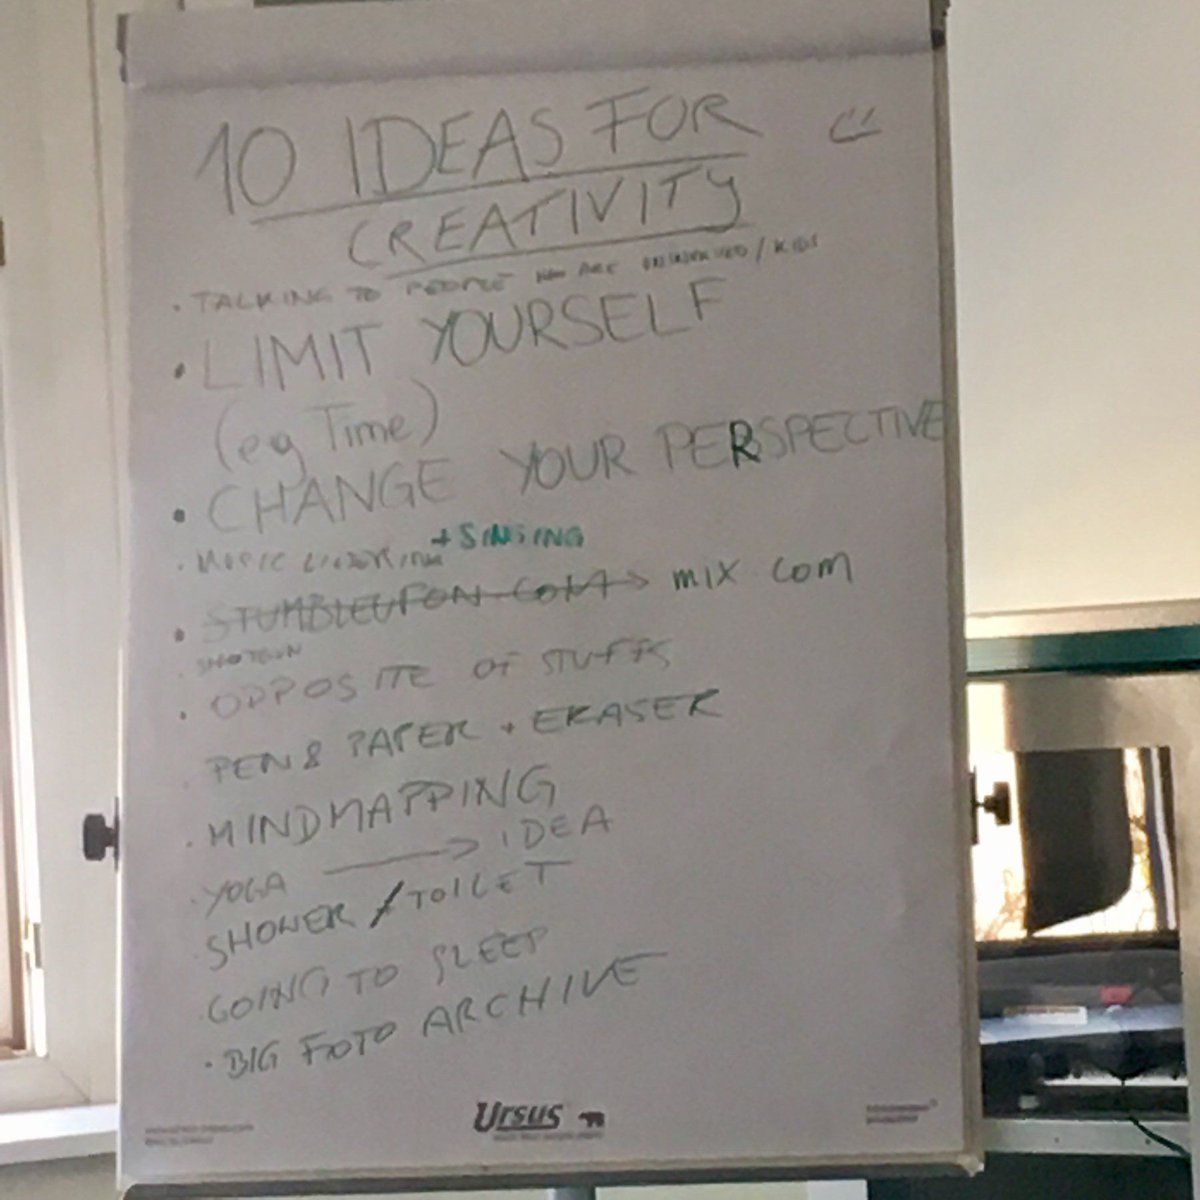 10 IDEAS FOR
CREATIVITY
• TALKING TO PEOPLE WHO ARE / KIDS
• LIMIT YOURSELF
(eg Time)
• CHANGE YOUR PERSPECTIVE
+ SINGING
• MUSIC
• STUMBLEUPON.COM → mix.com
• OPPOSITE OF STUFFS
• PEN & PAPER + ERASER
• MINDMAPPING
• YOGA → IDEA
• SHOWER / TOILET
• GOING TO SLEEP
• BIG FOTO ARCHIVE
Ursus